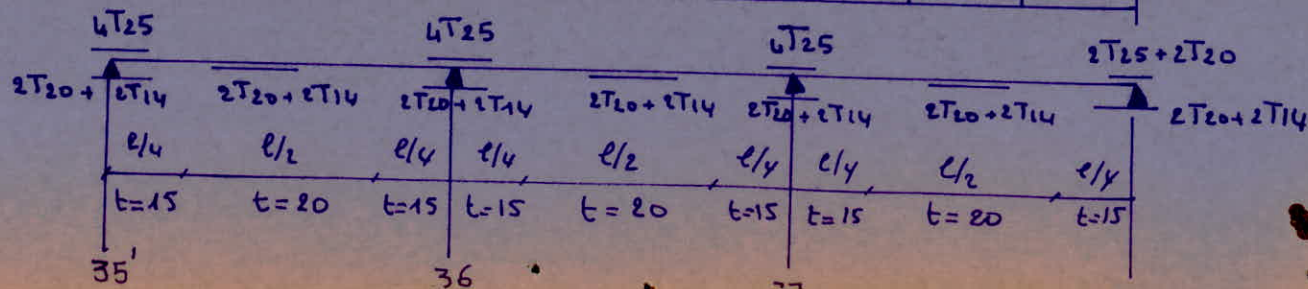 4T25 4T25 4T25 2T25+2T20
2T20+2T14 2T20+2T14 2T20+2T14 2T20+2T14 2T20+2T14 2T20+2T14 2T20+2T14
l/4 l/2 l/4 l/4 l/2 l/4 l/4 l/2 l/4
t=15 t=20 t=15 t=15 t=20 t=15 t=15 t=20 t=15
35' 36